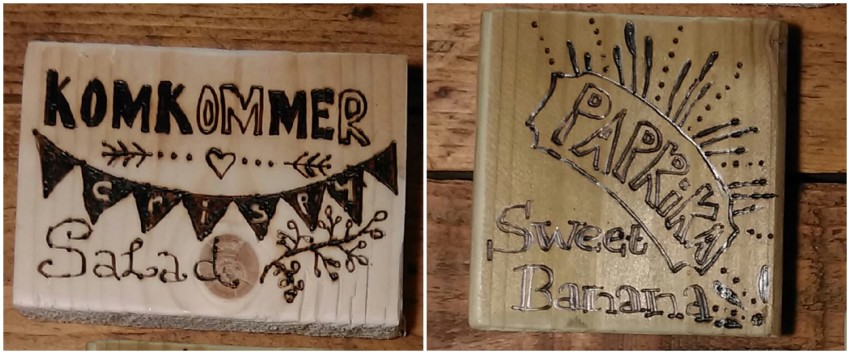 KOMKOMMER
crispy
Salad
PAPRiKA
Sweet
Banana